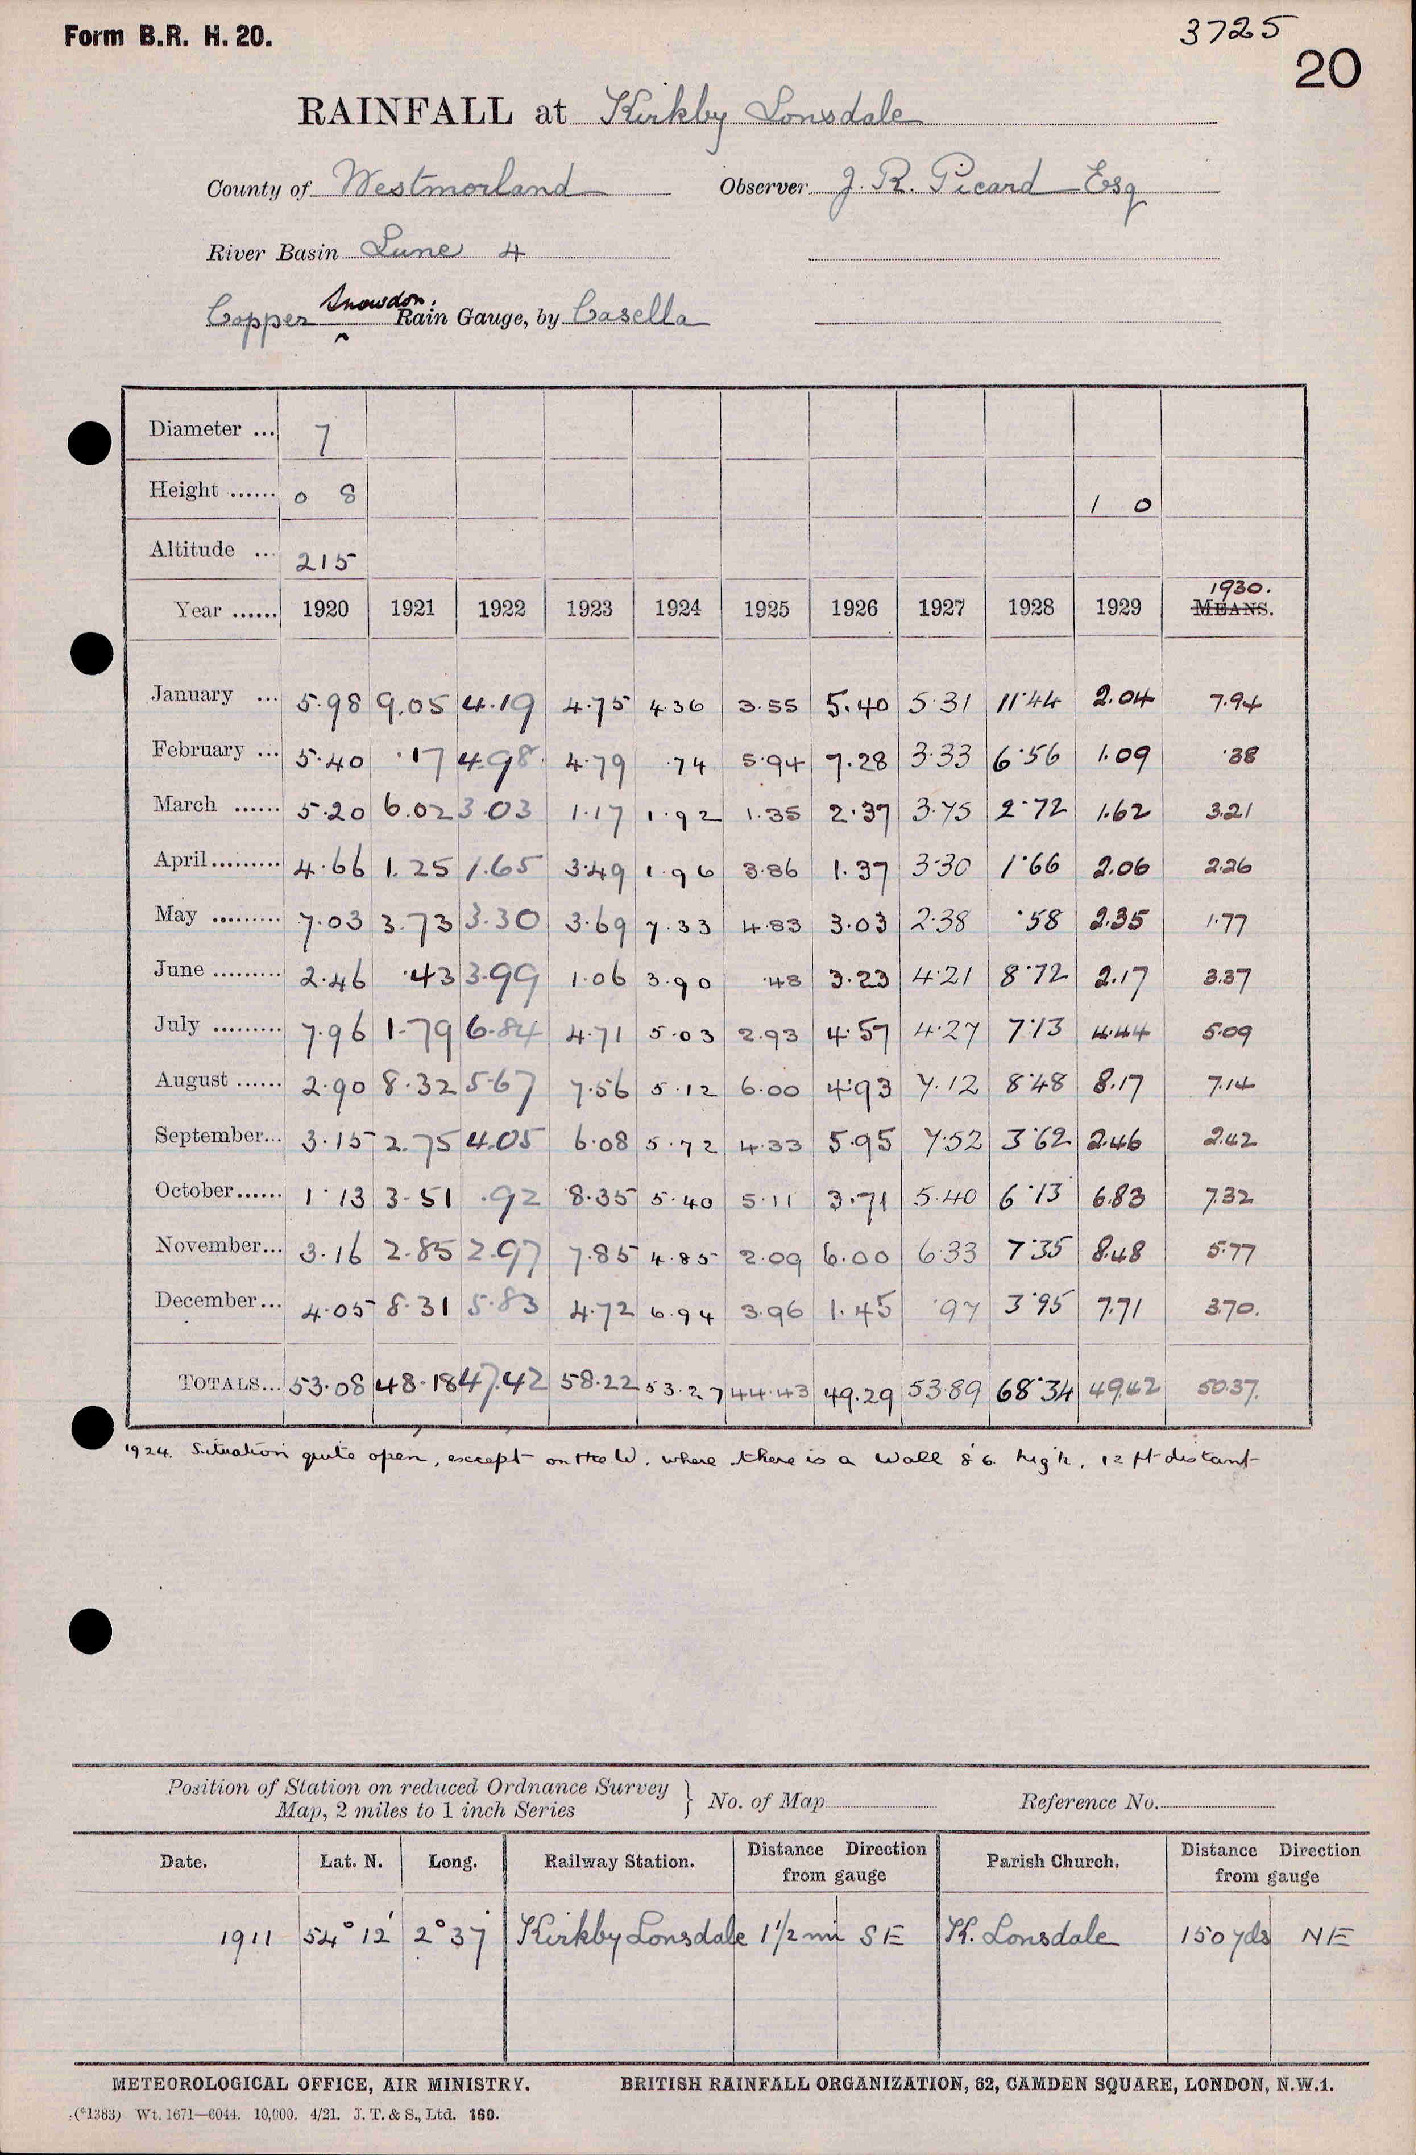 Form B.R. H. 20.
3725
20
RAINFALL at Kirkby Lonsdale
County of Westmorland Observer J. R. Picard Esq
River Basin Lune 4
Copper Snowdon. Rain Gauge, by Casella
Diameter ... 7
Height ...... 0 8 1 0
Altitude ... 215
Year ...... 1920 1921 1922 1923 1924 1925 1926 1927 1928 1929 MEANS. 1930.
January ... 5.98 9.05 4.19 4.75 4.36 3.55 5.40 5.31 11.44 2.04 7.94
February ... 5.40 .17 4.98 4.79 .74 5.94 7.28 3.33 6.56 1.09 .38
March ...... 5.20 6.02 3.03 1.17 1.92 1.35 2.37 3.75 2.72 1.62 3.21
April......... 4.66 1.25 1.65 3.49 1.96 3.86 1.37 3.30 1.66 2.06 2.26
May ......... 7.03 3.73 3.30 3.69 7.33 4.83 3.03 2.38 .58 2.35 1.77
June ......... 2.46 .43 3.99 1.06 3.90 .48 3.23 4.21 8.72 2.17 3.37
July ......... 7.96 1.79 6.84 4.71 5.03 2.93 4.57 4.27 7.13 4.44 5.09
August ...... 2.90 8.32 5.67 7.56 5.12 6.00 4.93 7.12 8.48 8.17 7.14
September... 3.15 2.75 4.05 6.08 5.72 4.33 5.95 7.52 3.62 2.46 2.42
October...... 1.13 3.51 .92 8.35 5.40 5.11 3.71 5.40 6.13 6.83 7.32
November... 3.16 2.85 2.97 7.85 4.85 2.09 6.00 6.33 7.35 8.48 5.77
December... 4.05 8.31 5.83 4.72 6.94 3.96 1.45 .97 3.95 7.71 3.70.
TOTALS... 53.08 48.18 47.42 58.22 53.27 44.43 49.29 53.89 68.34 49.42 50.37.
1924. Situation quite open, except on the W. where there is a Wall 8'6 high, 12 ft distant
Position of Station on reduced Ordnance Survey
Map, 2 miles to 1 inch Series } No. of Map Reference No.
Date. Lat. N. Long. Railway Station. Distance Direction from gauge Parish Church. Distance Direction from gauge
1911 54° 12' 2° 37' Kirkby Lonsdale 1 1/2 mi SE K. Lonsdale 150 yds NE
METEOROLOGICAL OFFICE, AIR MINISTRY. BRITISH RAINFALL ORGANIZATION, 62, CAMDEN SQUARE, LONDON, N.W.1.
(*1383) Wt. 1671—6044. 10,000. 4/21. J. T. & S., Ltd. 160.